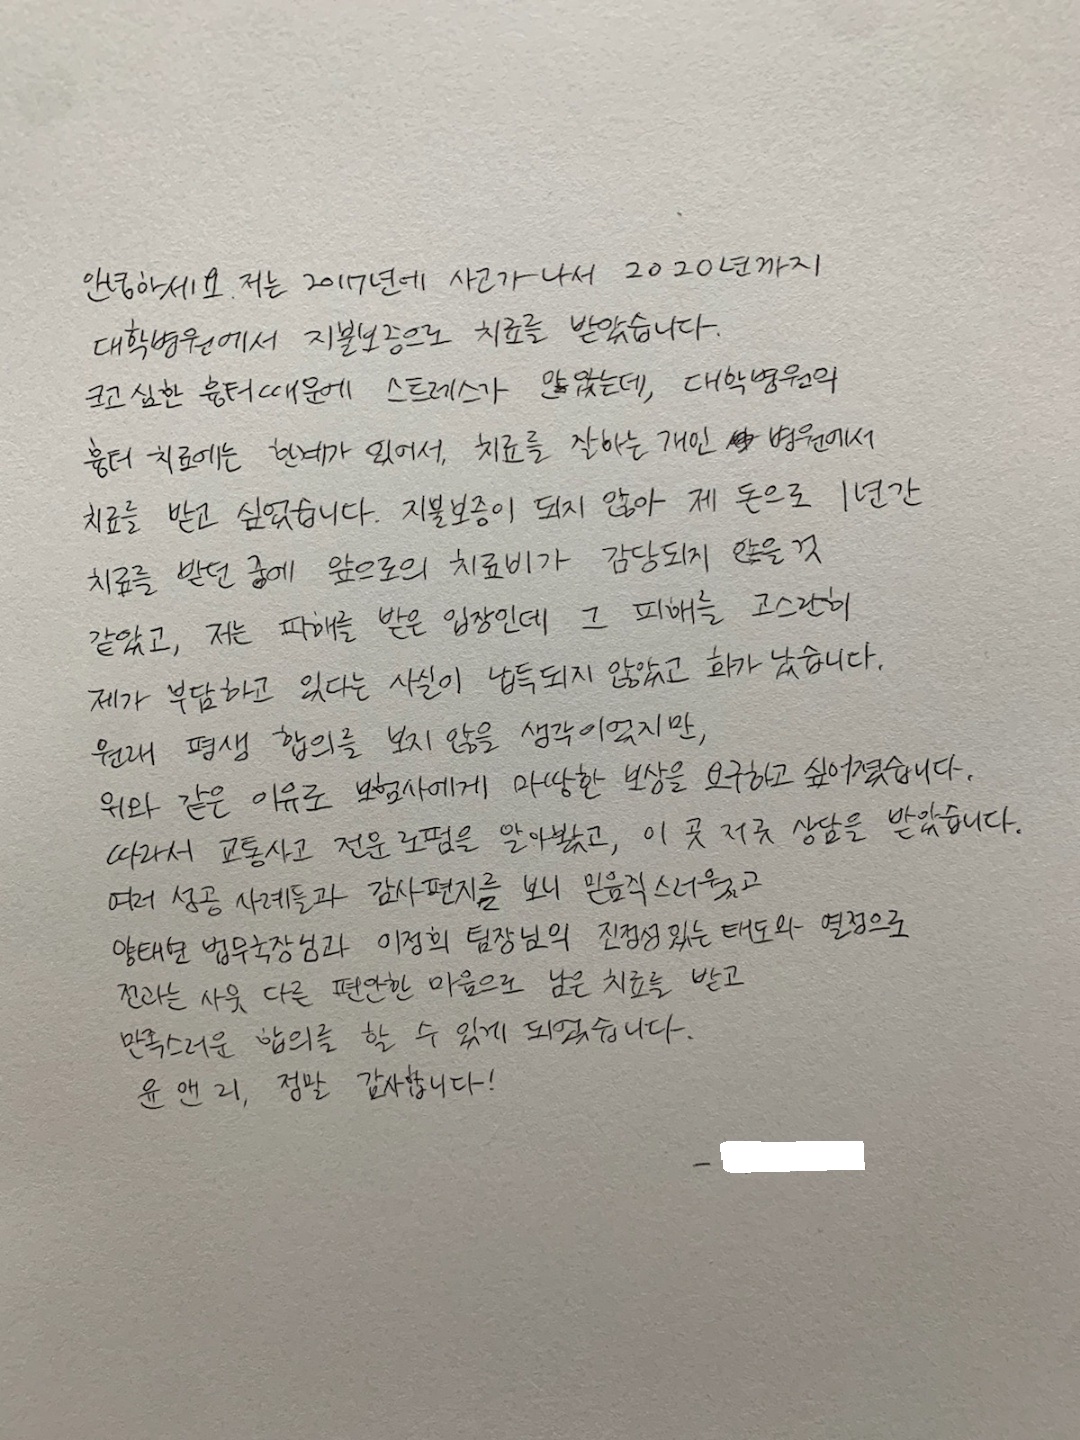 안녕하세요. 저는 2017년에 사고가 나서 2020년까지
대학병원에서 지불보증으로 치료를 받았습니다.
크고 심한 흉터때문에 스트레스가 많았는데, 대학병원의
흉터 치료에는 한계가 있어서, 치료를 잘하는 개인 병원에서
치료를 받고 싶었습니다. 지불보증이 되지 않아 제 돈으로 1년간
치료를 받던 중에 앞으로의 치료비가 감당되지 않을 것
같았고, 저는 피해를 받은 입장인데 그 피해를 고스란히
제가 부담하고 있다는 사실이 납득되지 않았고 화가 났습니다.
원래 평생 합의를 보지 않을 생각이었지만,
위와 같은 이유로 보험사에게 마땅한 보상을 요구하고 싶어졌습니다.
따라서 교통사고 전문 로펌을 알아봤고, 이 곳 저곳 상담을 받았습니다.
여러 성공 사례들과 감사편지를 보니 믿음직스러웠고
양태번 법무국장님과 이정희 팀장님의 진정성 있는 태도와 열정으로
전과는 사뭇 다른 편안한 마음으로 남은 치료를 받고
만족스러운 합의를 할 수 있게 되었습니다.
윤앤리, 정말 감사합니다!
-